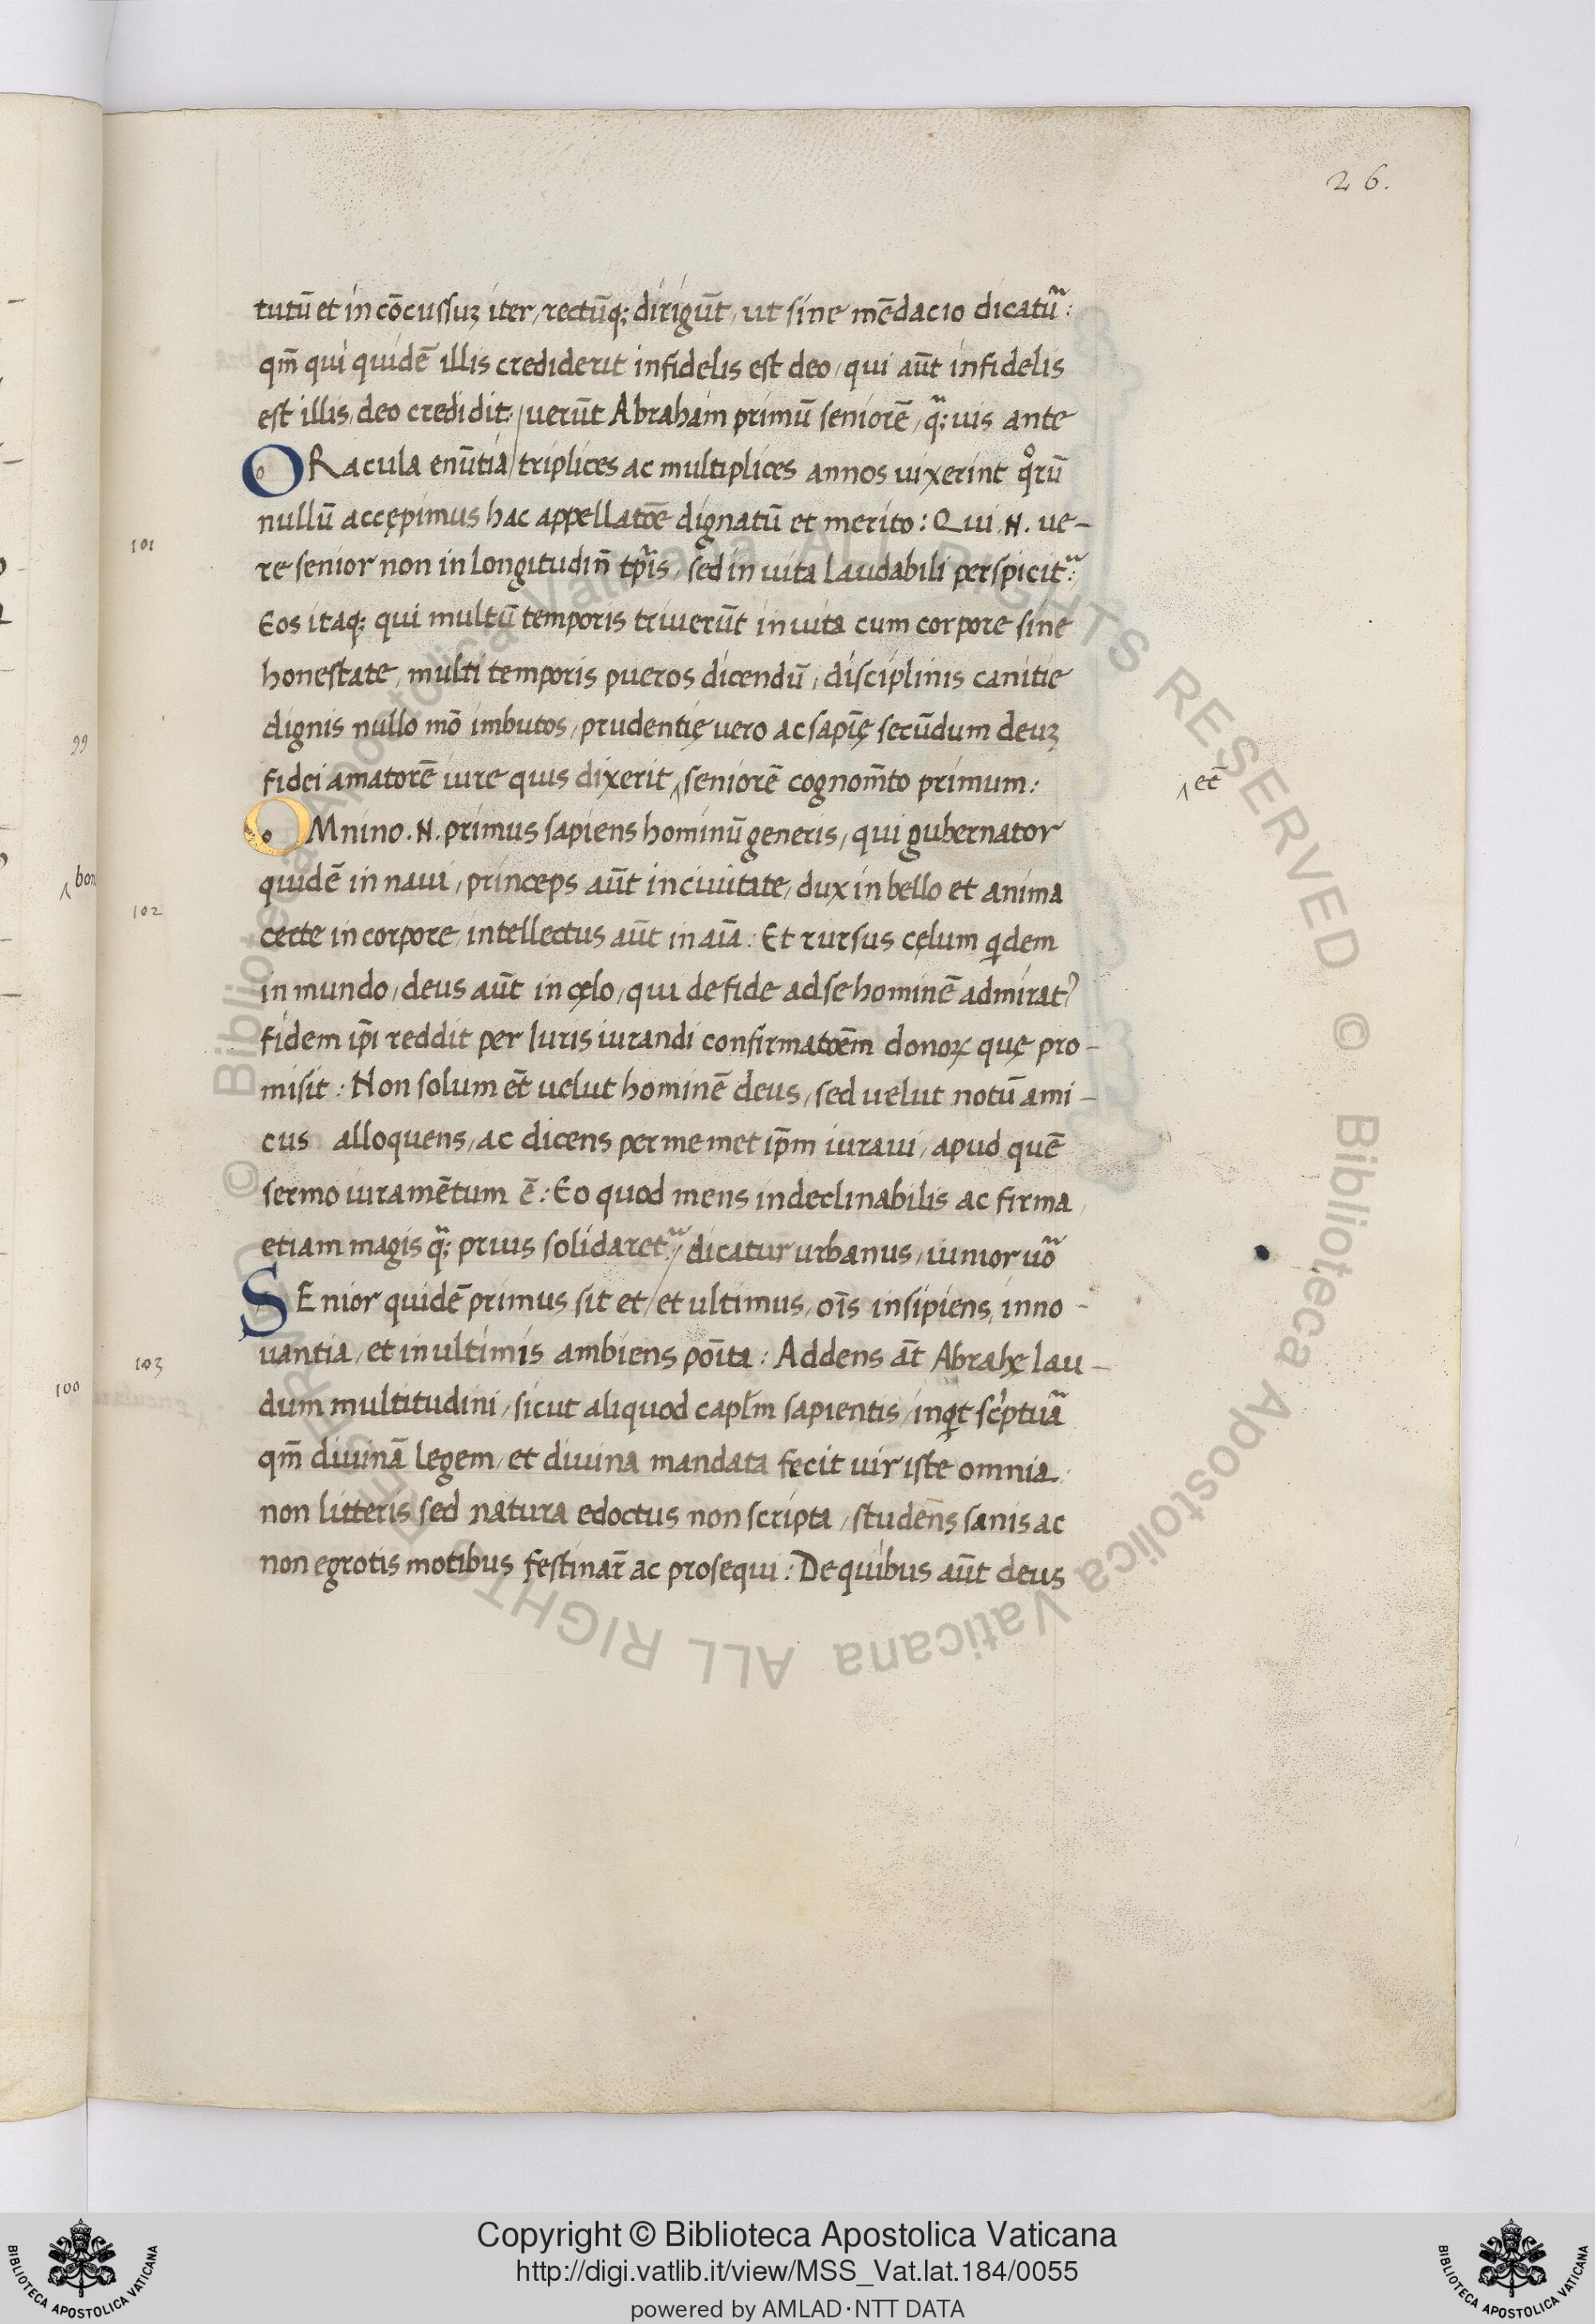 26.
tutū et in cōcussuꝫ iter, rectūq; dirigūt, ut sine mēdacio dicatur̃:
qm̄ qui quidē illis crediderit infidelis est deo, qui aūt infidelis
est illis, deo credidit: / uerūt Abraham primū seniorē, qᷓ;uis ante
ORacula enūtia / triplices ac multiplices annos uixerint qͦrū
nullū accępimus hac appellatōe dignatū et merito: Qui .N. ue-
101
re senior non in longitudin̄ tp̄ris, sed in uita laudabili perspicitᷣ:
Eos itaq; qui multū temporis triuerūt in uita cum corpore sine
honestate, multi temporis pueros dicendū, disciplinis canitie
dignis nullo mō imbutos, prudentię uero ac sapīę secūdum deuꝫ
99
fidei amatorē iure quis dixerit ‸ seniorē cognom̄to primum:
‸ et̄
OMnino .N. primus sapiens hominū generis, qui gubernator
quidē in naui, princeps aūt in ciuitate, dux in bello et anima
‸ bon
102
certe in corpore, intellectus aūt in aīa: Et rursus cęlum qͥdem
in mundo, deus aūt in cęlo, qui de fide ad se hominē admiratᷣ
fidem ip̄i reddit per Iuris iurandi confirmatōem donoꝝ quę pro-
misit: Non solum et̄ uelut hominē deus, sed uelut notū ami-
cus alloquens, ac dicens per me met ip̄m iuraui, apud quē
sermo iuramētum ē: Eo quod mens indeclinabilis ac firma,
etiam magis qᷓ; prius solidaretᷣ: / dicatur urbanus, iunior uo᷈
SEnior quidē primus sit et / et ultimus, oīs insipiens, inno-
103
uantia, et in ultimis ambiens poīta: Addens at̄ Abrahę lau-
100
dum multitudini, sicut aliquod capl̄m sapientis, inqͥt scͥptua᷈
qm̄ diuinā legem, et diuina mandata fecit uir iste omnia,
non litteris sed natura edoctus non scripta, studens sanis ac
non egrotis motibus festinar̄ ac prosequi: De quibus aūt deus
© Biblioteca Apostolica Vaticana ALL RIGHTS RESERVED © Biblioteca Apostolica Vaticana ALL RIGHTS RESERVED
Copyright © Biblioteca Apostolica Vaticana
http://digi.vatlib.it/view/MSS_Vat.lat.184/0055
powered by AMLAD·NTT DATA
BIBLIOTECA APOSTOLICA VATICANA
BIBLIOTECA APOSTOLICA VATICANA